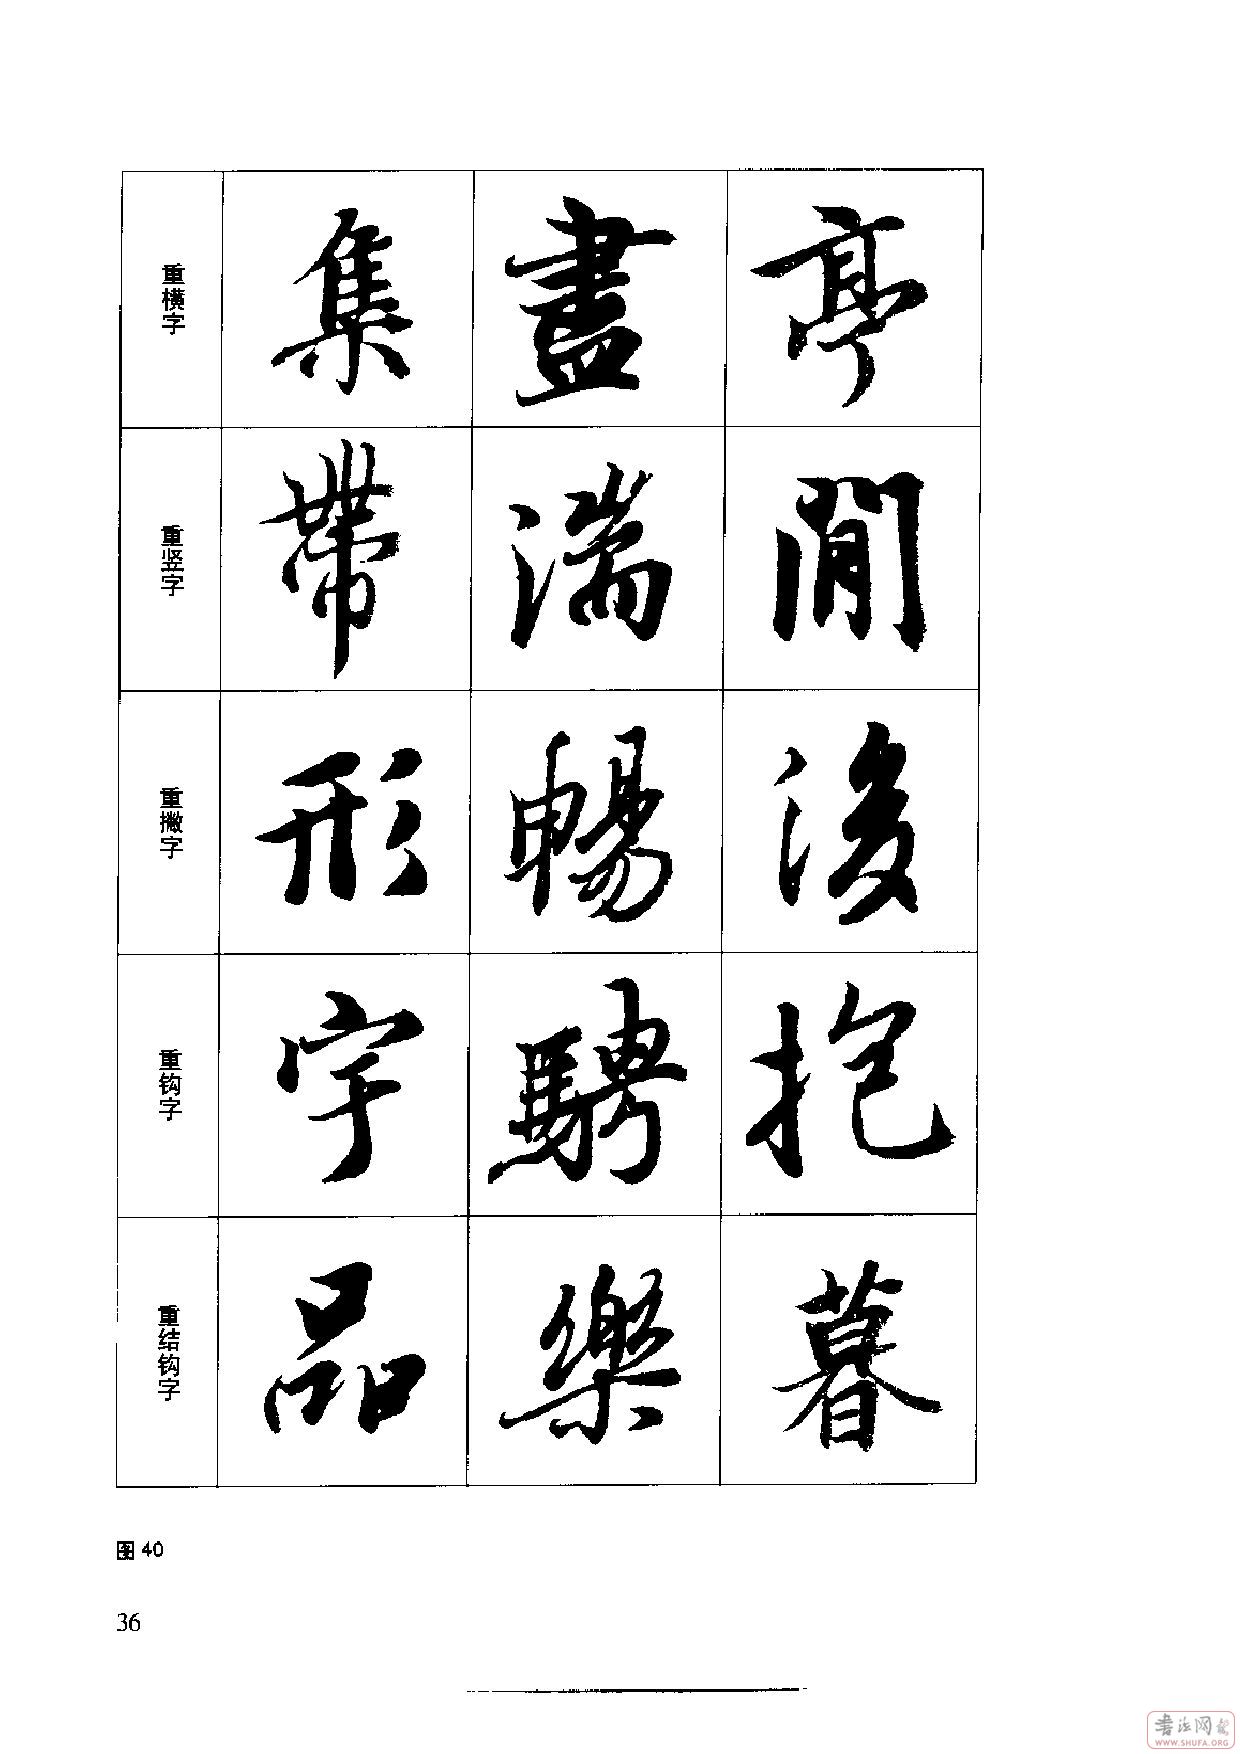 重横字 集 盡 亭
重竖字 帶 湍 閒
重撇字 形 暢 後
重钩字 宇 騁 抱
重结钩字 品 樂 暮
图 40
36
書法网
WWW.SHUFA.ORG